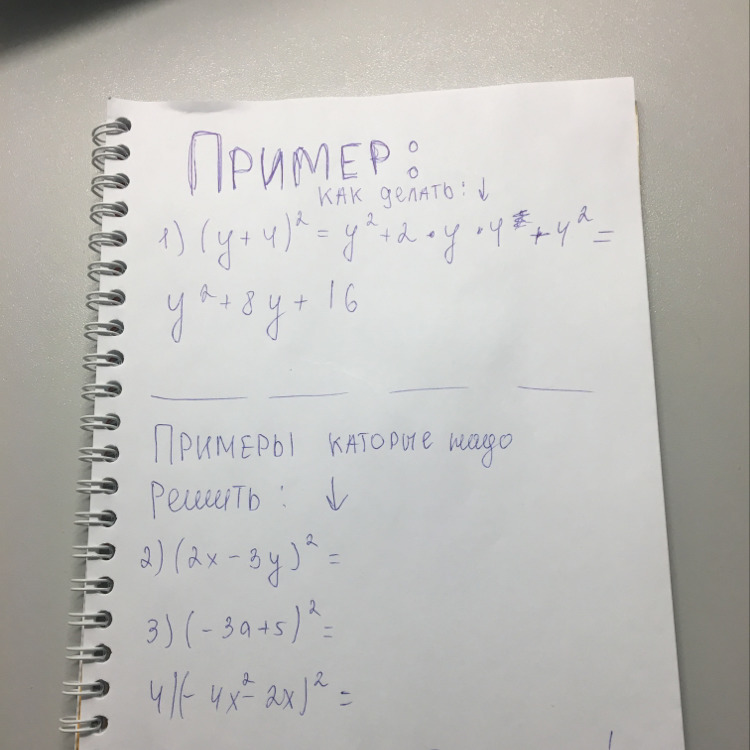 ПРИМЕР:
КАК ДЕЛАТЬ: ↓
1) (y + 4)² = y² + 2 · y · 4 + 4² =
y² + 8y + 16
ПРИМЕРЫ КАТОРЫЕ НАДО
РЕШИТЬ: ↓
2) (2x - 3y)² =
3) (- 3a + 5)² =
4) (- 4x² - 2x)² =